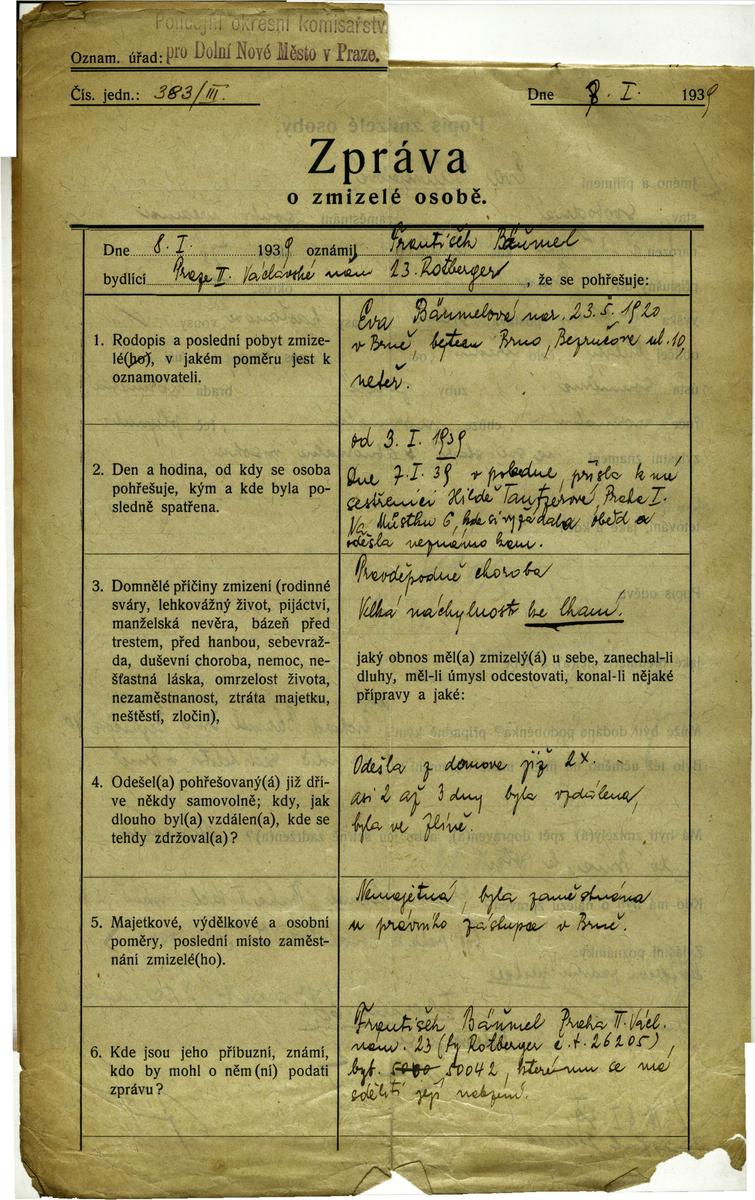 Policejní okresní komisařství
Oznam. úřad: pro Dolní Nové Město v Praze.
Čís. jedn.: 383/III.
Dne 8. I. 1939
Zpráva
o zmizelé osobě.
Dne 8. I. 1939 oznámil František Bäumel
bydlící Praze II. Václavské nám 23. Rotberger, že se pohřešuje:
1. Rodopis a poslední pobyt zmize-
lé(ho), v jakém poměru jest k
oznamovateli.
Eva Bäumelová nar. 23.5.1920
v Brně, bytem Brno, Bezručova ul. 10,
neteř.
2. Den a hodina, od kdy se osoba
pohřešuje, kým a kde byla po-
sledně spatřena.
od 3. I. 1939
Dne 7. I. 39 v poledne, přišla k mé
sestřenici Hildě Tautzerové, Praha I.
Na Můstku 6, kde si vyžádala oběd a
odešla neznámo kam.
3. Domnělé příčiny zmizení (rodinné
sváry, lehkovážný život, pijáctví,
manželská nevěra, bázeň před
trestem, před hanbou, sebevraž-
da, duševní choroba, nemoc, ne-
šťastná láska, omrzelost života,
nezaměstnanost, ztráta majetku,
neštěstí, zločin),
Pravděpodně choroba
Velká náchylnost ke lhaní.
jaký obnos měl(a) zmizelý(á) u sebe, zanechal-li
dluhy, měl-li úmysl odcestovati, konal-li nějaké
přípravy a jaké:
4. Odešel(a) pohřešovaný(á) již dří-
ve někdy samovolně; kdy, jak
dlouho byl(a) vzdálen(a), kde se
tehdy zdržoval(a)?
Odešla z domova již 2x.
asi 2 až 3 dny byla vzdálena,
byla ve Zlíně.
5. Majetkové, výdělkové a osobní
poměry, poslední místo zaměst-
nání zmizelé(ho).
Nemajetná, byla zaměstnána
u právního zástupce v Brně.
6. Kde jsou jeho příbuzní, známí,
kdo by mohl o něm(ní) podati
zprávu?
František Bäumel Praha II. Václ.
nám. 23 (fy Rotberger č.t. 26205),
byt. 50042, kterému se má
sděliti její nalezení.